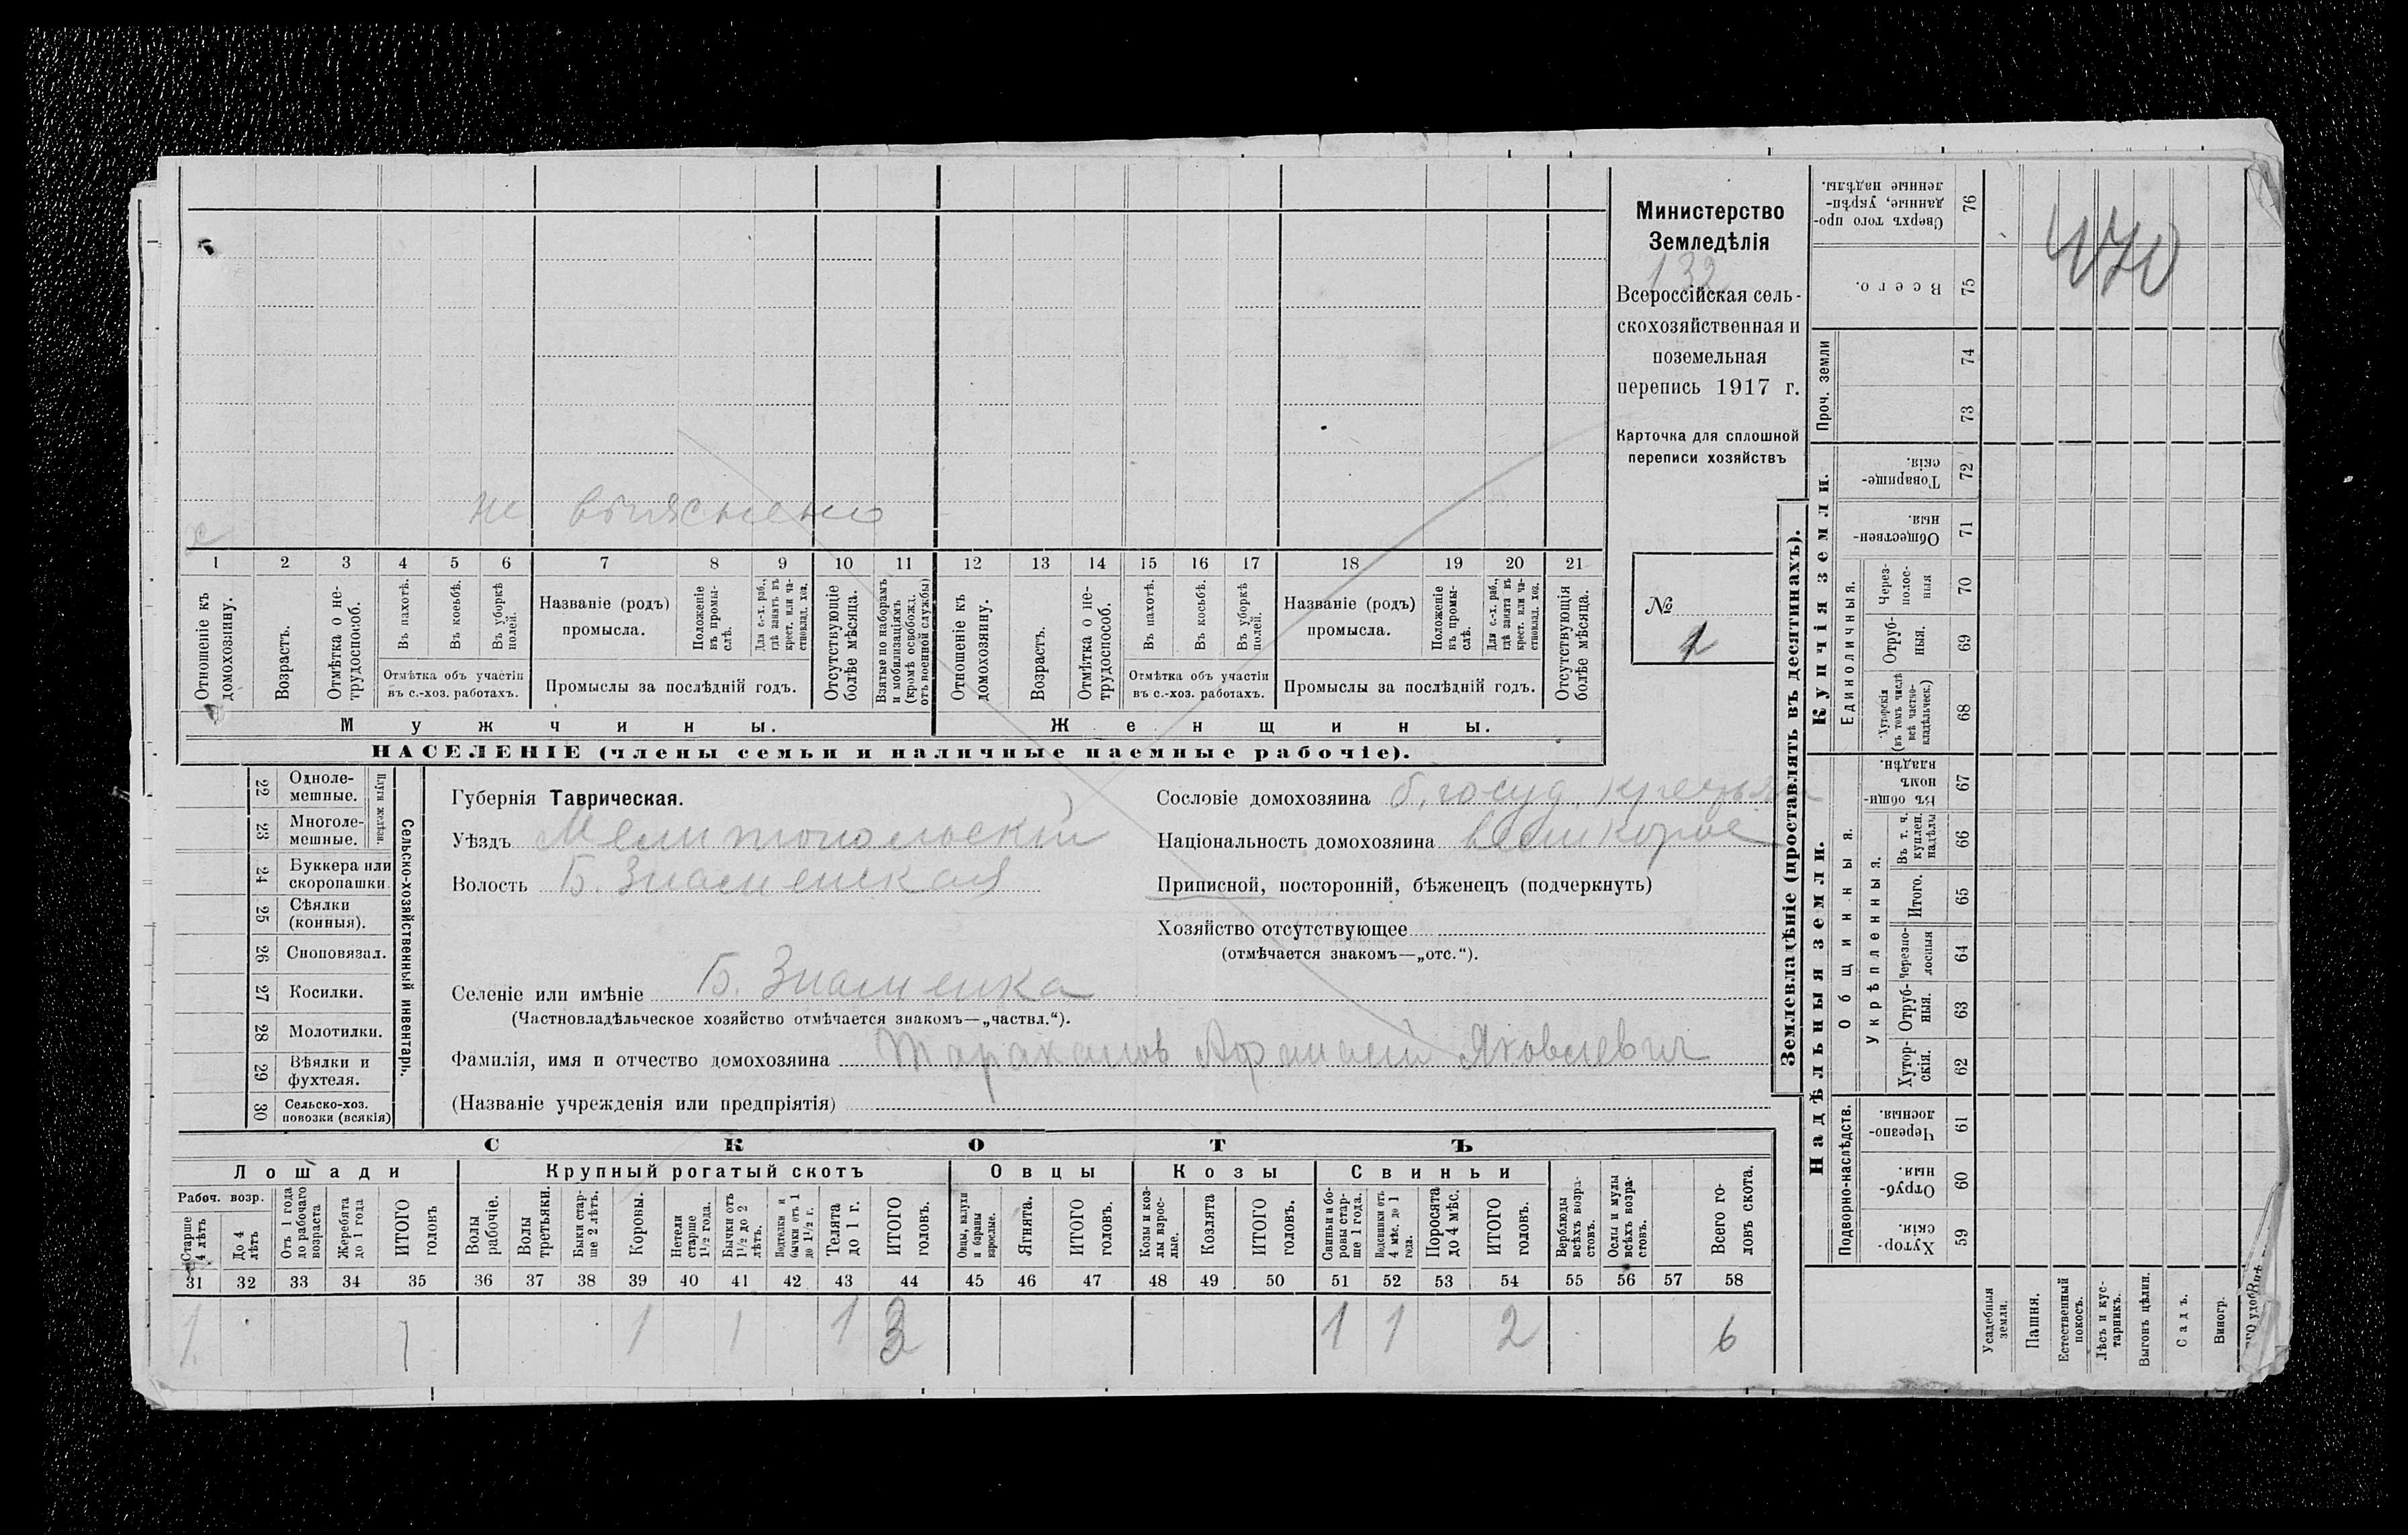 Министерство
Земледѣлія
132
Всероссійская сель-
скохозяйственная и
поземельная
перепись 1917 г.
Карточка для сплошной
переписи хозяйствъ
№
1
не выяснено
1 2 3 4 5 6 7 8 9 10 11 12 13 14 15 16 17 18 19 20 21
Отношеніе къ домохозяину.
Возрастъ.
Отмѣтка о не-трудоспособ.
Въ пахотѣ.
Въ косьбѣ.
Въ уборкѣ полей.
Отмѣтка объ участіи
въ с.-хоз. работахъ.
Названіе (родъ)
промысла.
Положеніе въ промы-слѣ.
Для с.-х. раб., гдѣ занятъ въ крест. или ча-стновлад. хоз.
Промыслы за послѣдній годъ.
Отсутствующіе болѣе мѣсяца.
Взятые по наборамъ и мобилизаціямъ (кромѣ освобожд. отъ военной службы)
Отношеніе къ домохозяину.
Возрастъ.
Отмѣтка о не-трудоспособ.
Въ пахотѣ.
Въ косьбѣ.
Въ уборкѣ полей.
Отмѣтка объ участіи
въ с.-хоз. работахъ.
Названіе (родъ)
промысла.
Положеніе въ промы-слѣ.
Для с.-х. раб., гдѣ занята въ крест. или ча-стновлад. хоз.
Промыслы за послѣдній годъ.
Отсутствующія болѣе мѣсяца.
Мужчины.
Женщины.
НАСЕЛЕНІЕ (члены семьи и наличные наемные рабочіе).
Сельско-хозяйственный инвентарь.
Плуги желѣзн.
22 Одноле-
мешные.
23 Многоле-
мешные.
24 Буккера или
скоропашки.
25 Сѣялки
(конныя).
26 Сноповязал.
27 Косилки.
28 Молотилки.
29 Вѣялки и
фухтеля.
30 Сельско-хоз.
повозки (всякія)
Губернія Таврическая.
Уѣздъ Мелитопольскій
Волость Б. Знаменская
Сословіе домохозяина б. госуд. крестьян
Національность домохозяина великорос
Приписной, посторонній, бѣженецъ (подчеркнуть)
Хозяйство отсутствующее
(отмѣчается знакомъ—„отс.“).
Селеніе или имѣніе Б. Знаменка
(Частновладѣльческое хозяйство отмѣчается знакомъ—„частвл.“).
Фамилія, имя и отчество домохозяина Тараканов Афанасий Яковлевич
(Названіе учрежденія или предпріятія)
СКОТЪ
Лошади
Крупный рогатый скотъ
Овцы
Козы
Свиньи
Рабоч. возр.
Старше 4 лѣтъ
До 4 лѣтъ
Отъ 1 года до рабочаго возраста
Жеребята до 1 года
ИТОГО головъ
Волы рабочіе.
Волы третьяки.
Быки стар-ше 2 лѣтъ.
Коровы.
Нетели старше 1½ года.
Бычки отъ 1½ до 2 лѣтъ.
Подтелки и бычки отъ 1 до 1½ г.
Телята до 1 г.
ИТОГО головъ.
Овцы, валухи и бараны взрослые.
Ягнята.
ИТОГО головъ.
Козы и коз-лы взрос-лые.
Козлята
ИТОГО головъ.
Свиньи и бо-ровы стар-ше 1 года.
Подсвинки отъ 4 мѣс. до 1 года.
Поросята до 4 мѣс.
ИТОГО головъ.
Верблюды всѣхъ возра-стовъ.
Ослы и мулы всѣхъ возра-стовъ.
Всего го-ловъ скота.
31 32 33 34 35 36 37 38 39 40 41 42 43 44 45 46 47 48 49 50 51 52 53 54 55 56 57 58
1 1 1 1 1 3 1 1 2 6
Землевладѣніе (проставлять въ десятинахъ).
Надѣльныя земли.
Купчія земли.
Проч. земли
Подворно-наслѣдств.
Общинныя.
Укрѣпленныя.
Единоличныя.
Хутор-скія. 59
Отруб-ныя. 60
Черезпо-лосныя. 61
Хутор-скія. 62
Отруб-ныя. 63
Черезпо-лосныя 64
Итого. 65
Въ т. ч. куплен. надѣлы 66
Въ общи-номъ владѣн. 67
Хуторскія (въ томъ числѣ всѣ частно-владѣльческ.) 68
Отруб-ныя. 69
Через-полос-ныя 70
Обществен-ныя. 71
Товарище-скія. 72
73
74
Всего. 75
Сверхъ того про-данные, укрѣп-ленные надѣлы. 76
470
Усадебныя земли.
Пашня.
Естественный покосъ.
Лѣсъ и кус-тарникъ.
Выгонъ цѣлин.
Садъ.
Виногр.